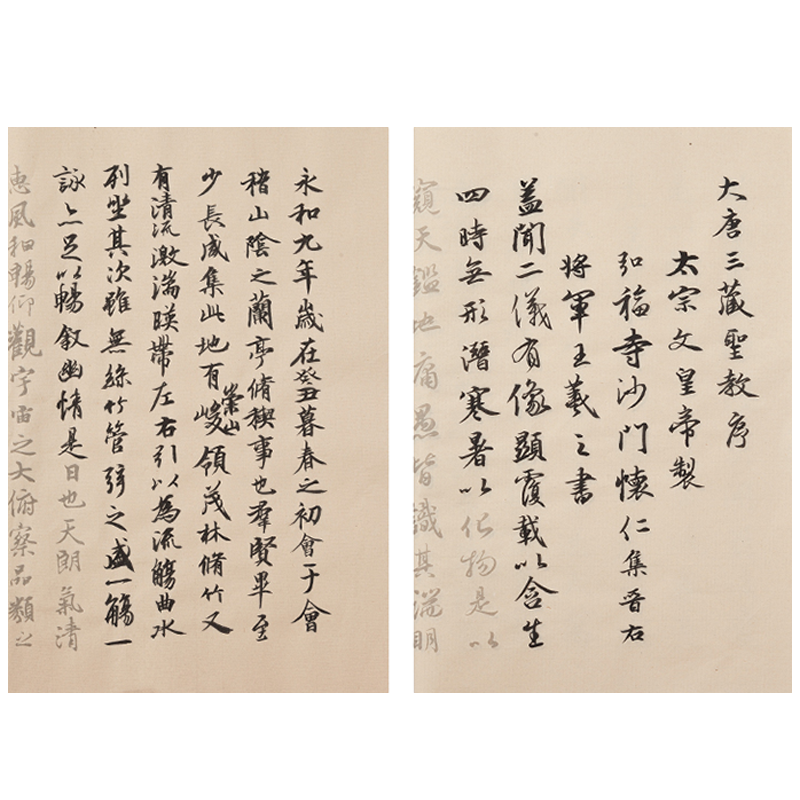 大唐三藏聖教序
太宗文皇帝製
弘福寺沙門懷仁集晉右
将軍王羲之書
蓋聞二儀有像顯覆載以含生
四時無形潛寒暑以化物是以
窺天鑑地庸愚皆識其端明
永和九年歲在癸丑暮春之初會于會
稽山陰之蘭亭脩禊事也羣賢畢至
少長咸集此地有崇山峻領茂林脩竹又
有清流激湍暎帶左右引以為流觴曲水
列坐其次雖無絲竹管弦之盛一觴一
詠亦足以暢敘幽情是日也天朗氣清
惠風和暢仰觀宇宙之大俯察品類之